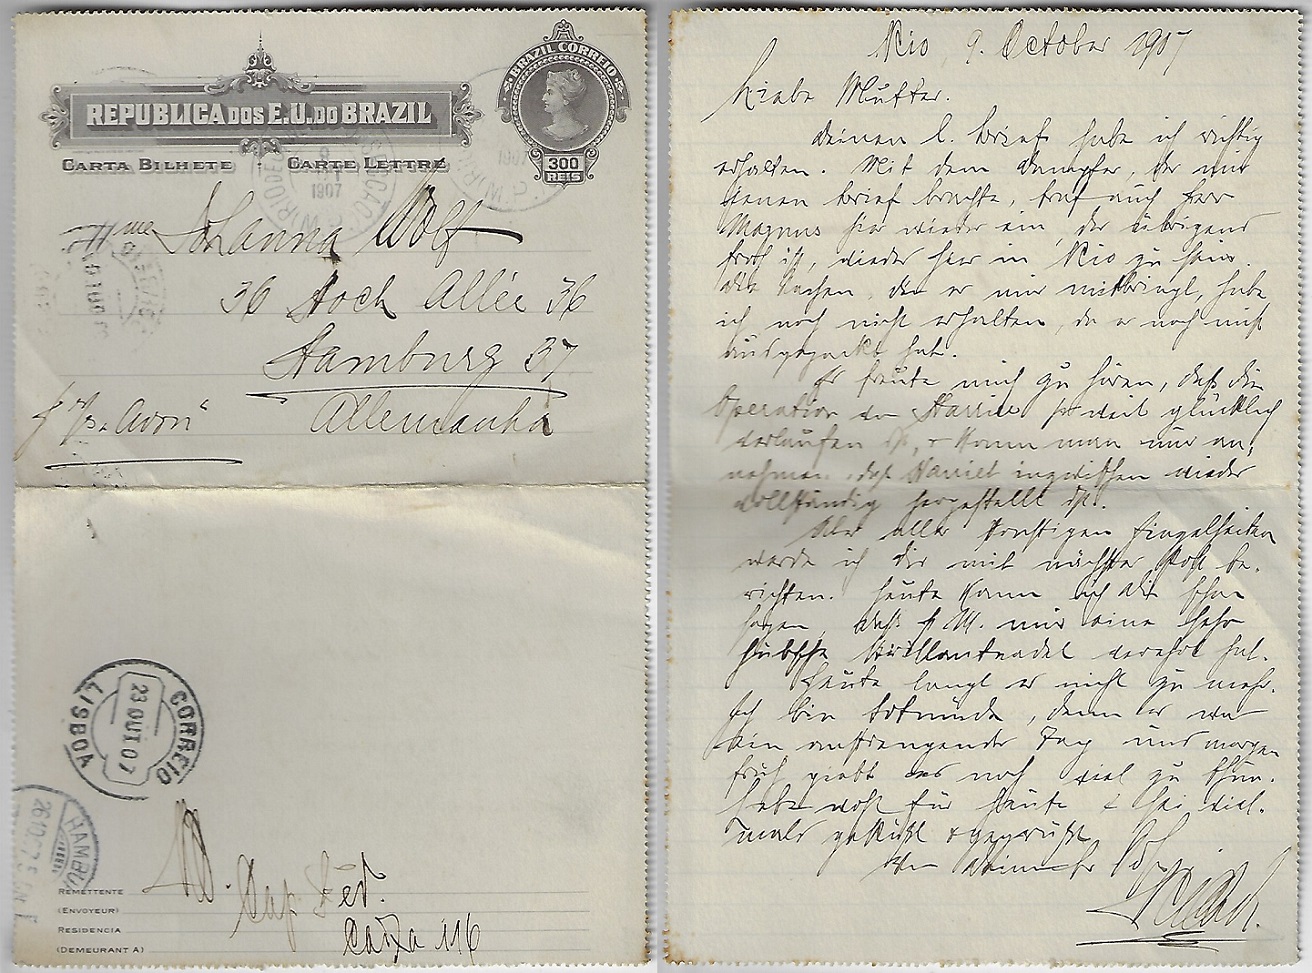 REPUBLICA DOS E.U. DO BRAZIL
BRAZIL CORREIO
CARTA BILHETE CARTE LETTRE
300
REIS
1907
1907
Mme Johanna Wolf
36 Hoch Allée 36
Hamburg 37.
Allemanha
p "Avon"
CORREIO
23 OUT 07
LISBOA
HAMBU
26.10.07
REMETTENTE
(ENVOYEUR)
RESIDENCIA
(DEMEURANT A)
Cap. Fed.
Caixa 116
Rio, 9. October 1907
Liebe Mutter.
Deinen l. Brief habe ich richtig
erhalten. Mit dem Dampfer, der mir
Deinen Brief brachte, traf auch Herr
Magnus hier wieder ein, der übrigens
froh ist, wieder hier in Rio zu sein.
Die Sachen, die er mir mitbringt, habe
ich noch nicht erhalten, da er noch nicht
ausgepackt hat.
Es freute mich zu hören, daß die
Operation so weit glücklich
verlaufen ist, & kann man nur an-
nehmen, daß Harriet inzwischen wieder
vollständig hergestellt ist.
Über alle sonstigen Einzelheiten
werde ich dir mit nächster Post be-
richten. Heute kann ich dir schon
sagen, daß H. M. mir eine sehr
hübsche Brillantnadel verehrt hat.
Heute langt es nicht zu mehr.
Ich bin todmüde, denn es war
ein anstrengender Tag und morgen
früh giebt es noch viel zu thun.
Lebe wohl für heute & sei viel-
mals geküßt & gegrüßt
von Deinem